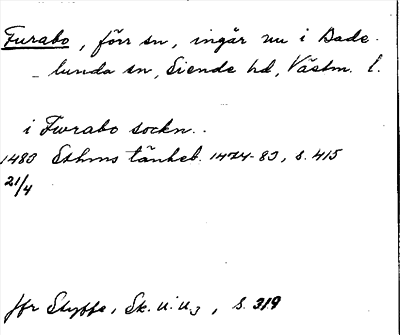 Furabo, förr sn, ingår nu i Bade-
lunda sn, Siende hd, Västm. l.
i Fwrabo sockn..
1483 Sthms tänkeb. 1474-83, s. 415
21/4
Jfr Styffe, Sk. U. U3, s. 319